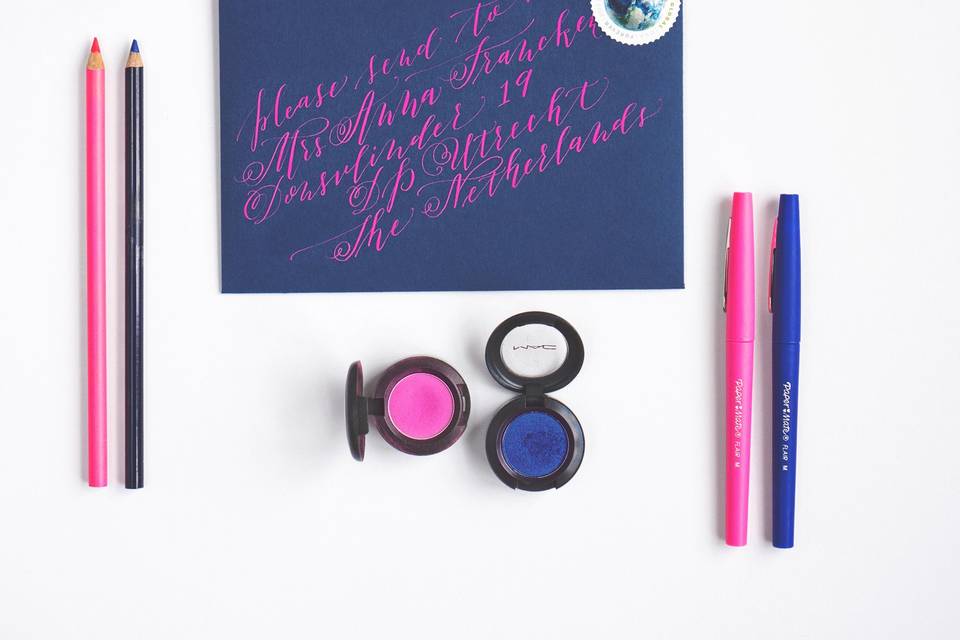 please send to
Mrs Anna Francken
Donsvlinder 19
DP Utrecht
The Netherlands
GLOBAL
FOREVER
MAC
Paper Mate® FLAIR M
Paper Mate® FLAIR M